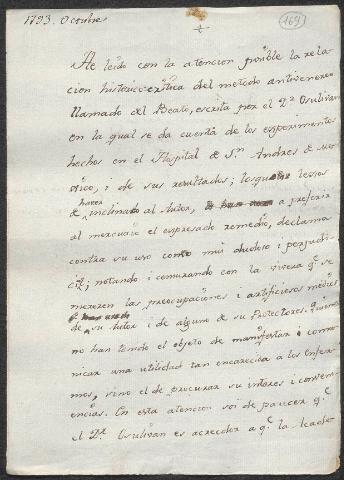 1793. Octubre
169
He leido con la atencion posible la rela-
cion historico-critica del metodo antivenereo
llamado del Beato, escrita por el Dr. Osulivan
en la qual se da cuenta de los experimentos
hechos en el Hospital de Sn. Andres de Me-
xico, i de sus resultados; los quales lexos
de haver inclinado al Autor, a preferir
al mercurio el expresado remedio, declama
contra su uso como mui dudoso i perjudi-
cial; notando i censurando con la viveza qe. se
merecen las preocupaciones i artificiosos medios
de su Autor i de alguno de sus Protectores. Quienes
no han tenido el objeto de manifestar i comu-
nicar una utilidad tan encarecida a los Enfer-
mos, sino el de procurar su interes i conveni-
encias. En esta atencion soi de parecer qe.
el Dr. Osulivan es acrehedor a qe. la Acade-